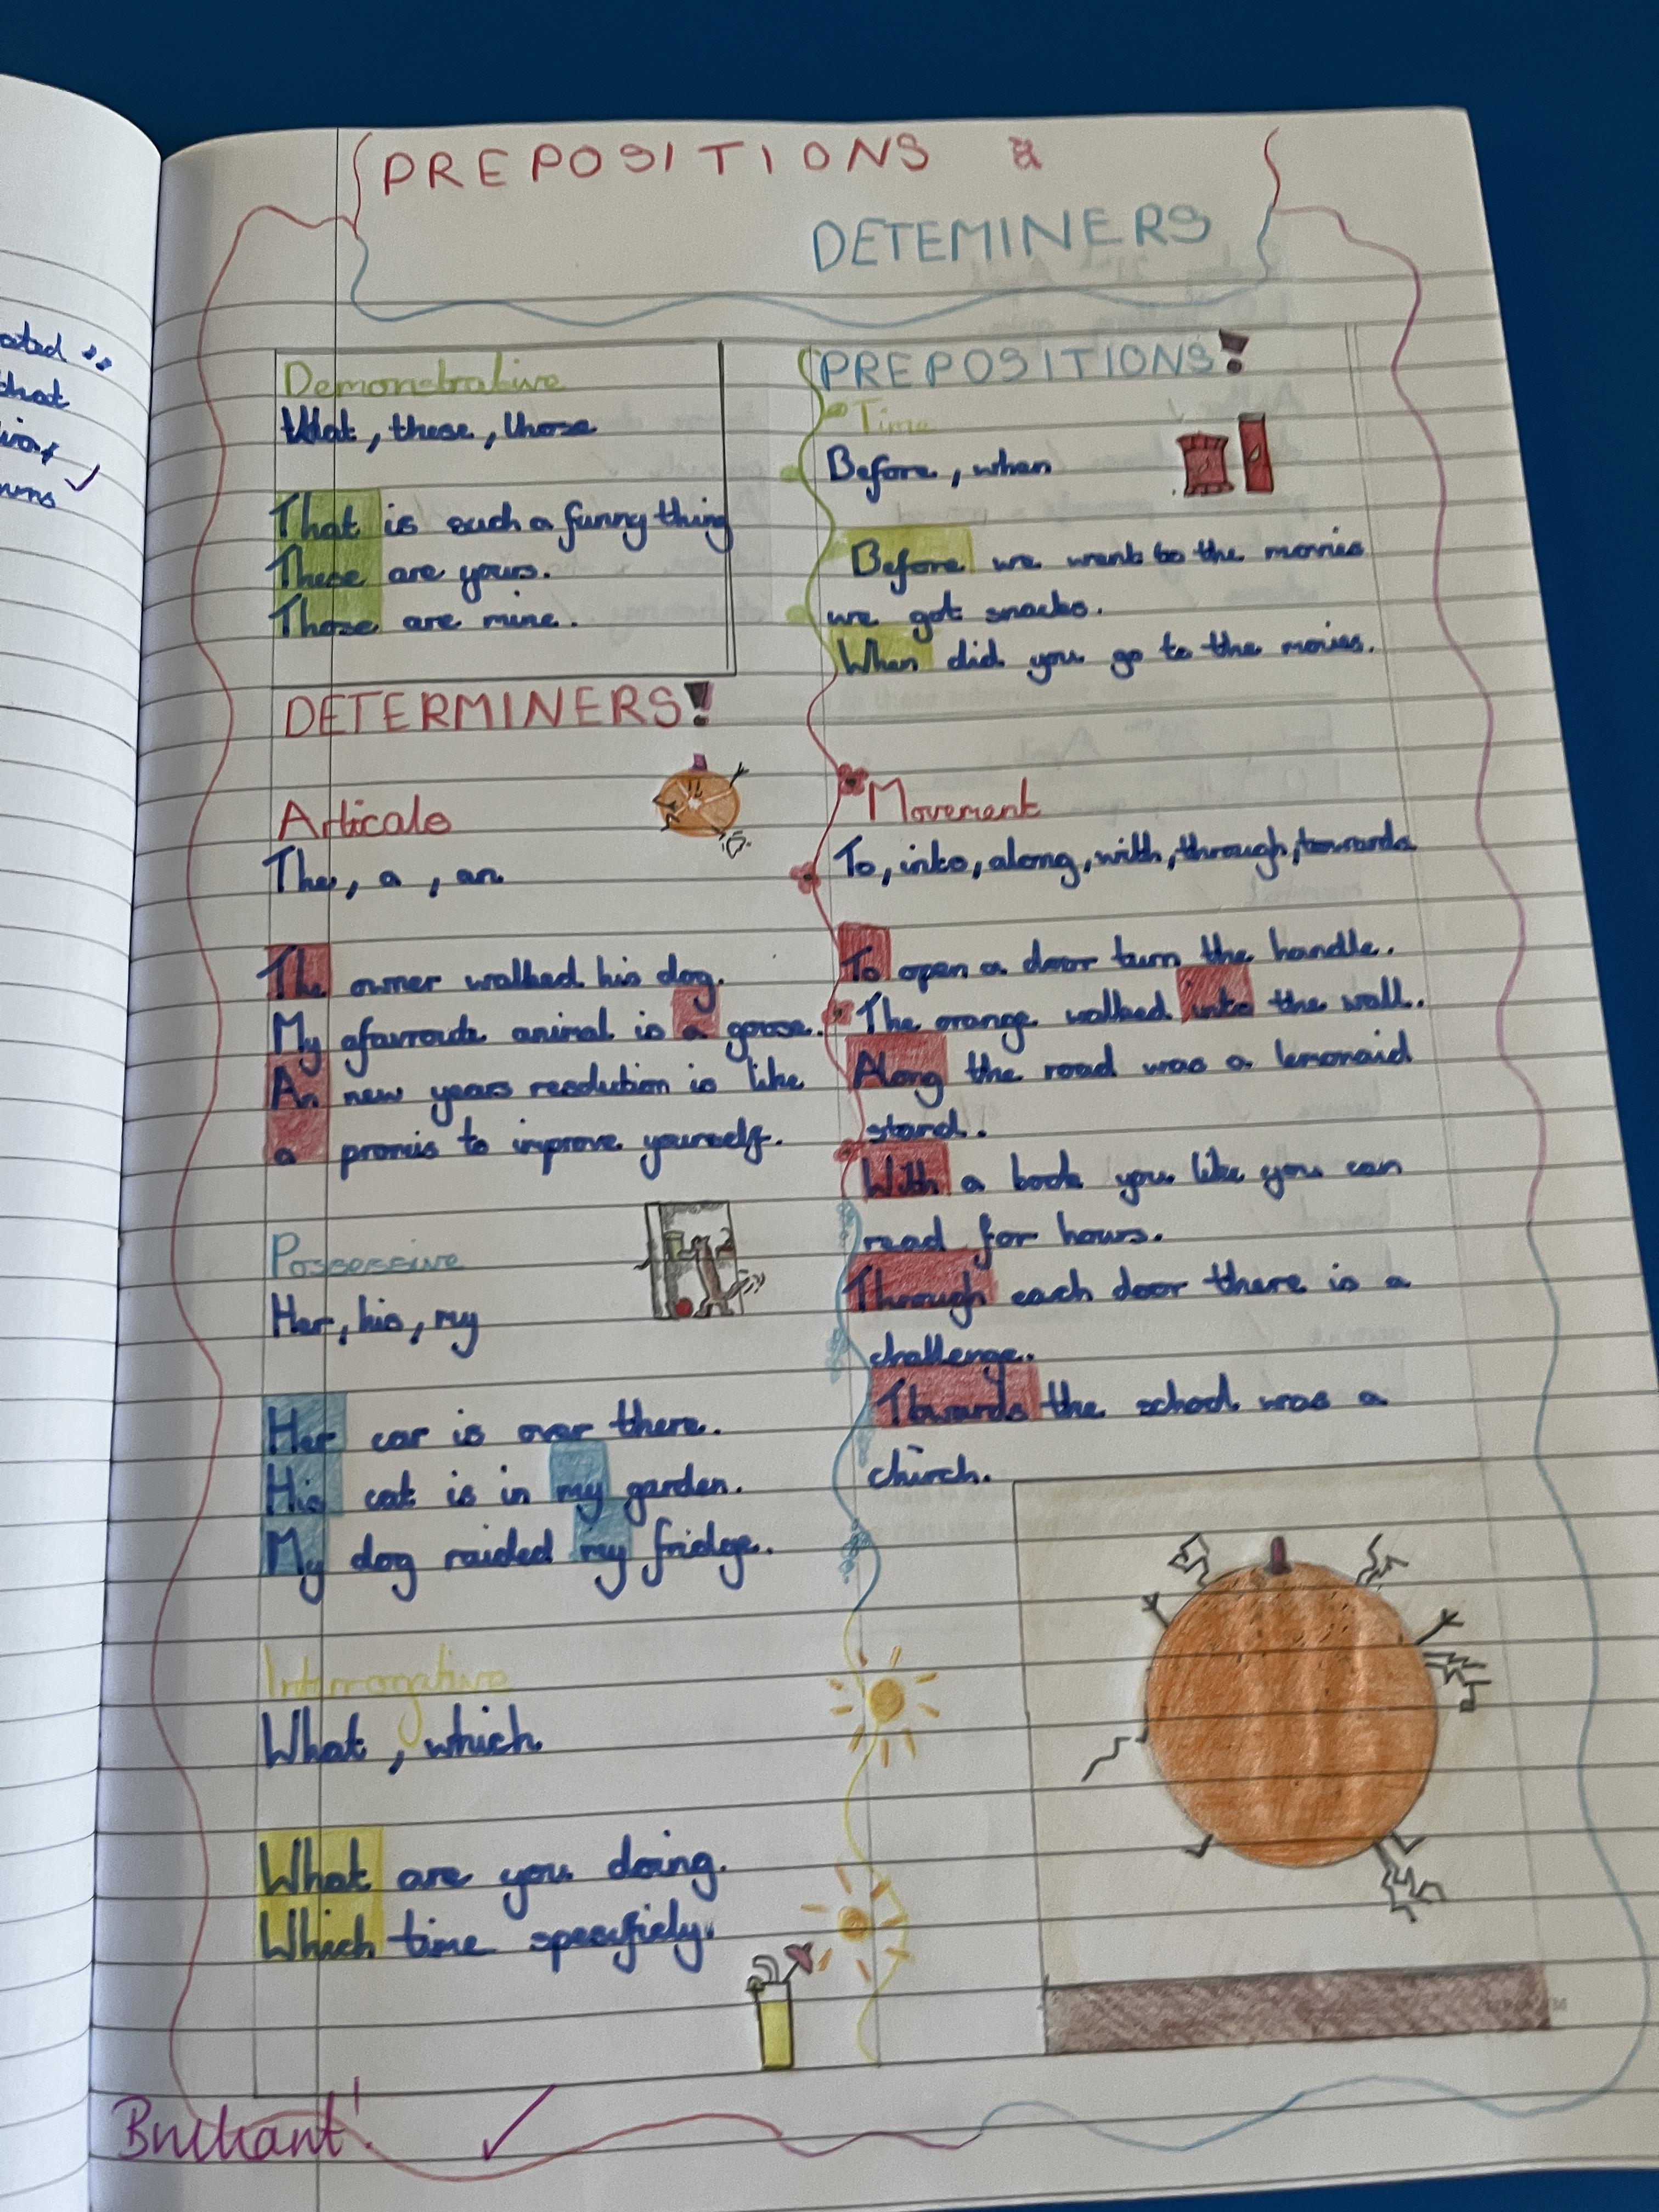 ated :-
that
✓
PREPOSITIONS &
DETEMINERS
Demonstrative
that, these, those
That is such a funny thing
These are yours.
Those are mine.
DETERMINERS!
Articals
The, a, an
The owner walked his dog.
My afavroute animal is a goose.
An new years resolution is like
a promis to improve yourself.
Possessive
Her, his, my
Her car is over there.
His cat is in my garden.
My dog raided my fridge.
Interrogative
What, which
What are you doing.
Which time specifiely.
PREPOSITIONS!
Time
Before, when
Before we went to the movies
we got snacks.
When did you go to the movies.
Movement
To, into, along, with, through, towards
To open a door turn the handle.
The orange walked into the wall.
Along the road was a lemonaid
stand.
With a book you like you can
read for hours.
Through each door there is a
challenge.
Towards the school was a
chirch.
Brilliant! ✓